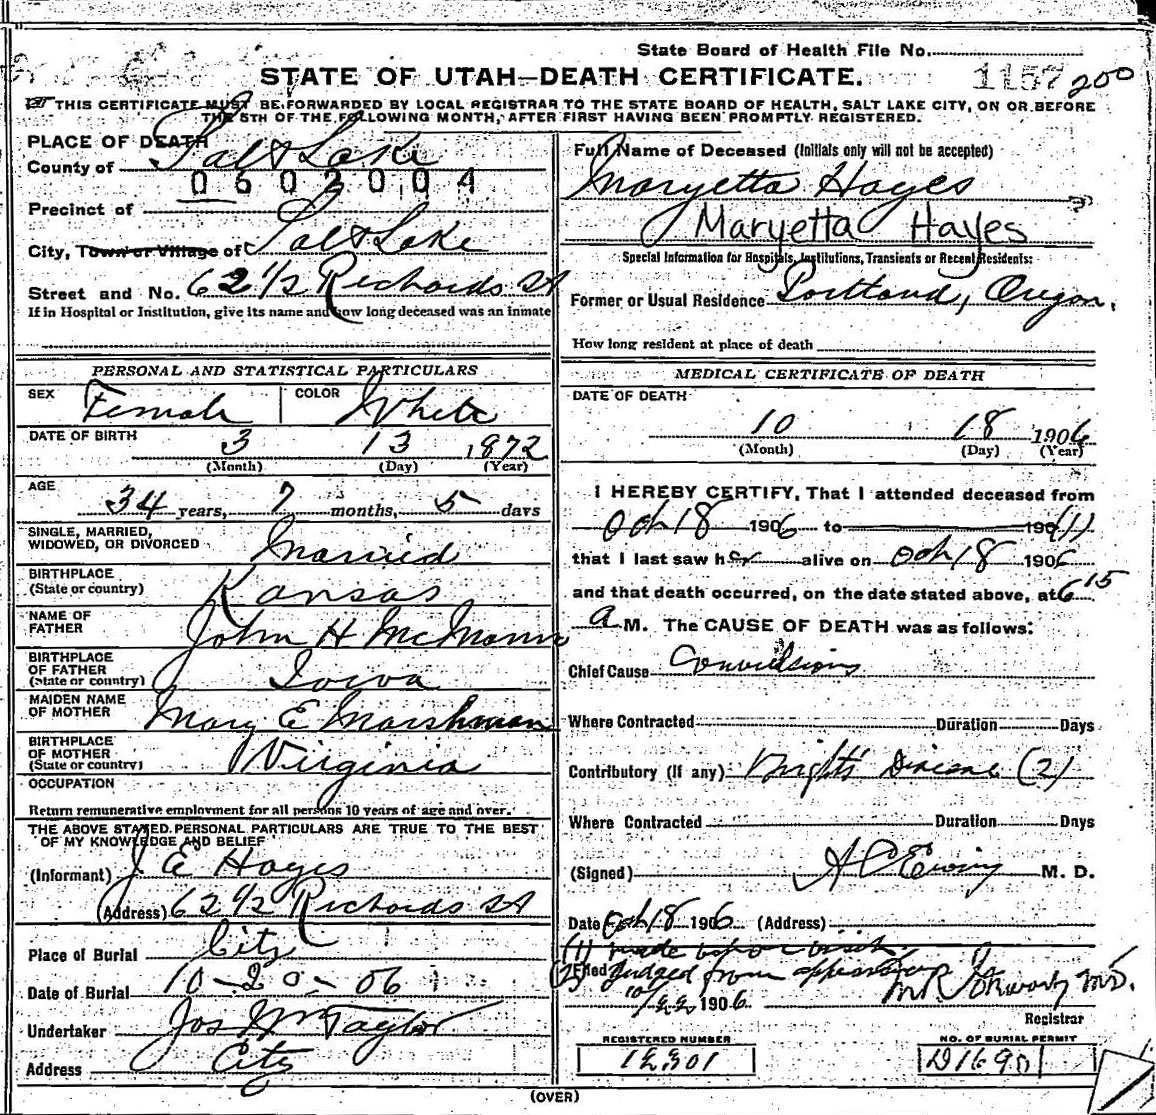 State Board of Health File No.
1157 200
STATE OF UTAH—DEATH CERTIFICATE.
THIS CERTIFICATE MUST BE FORWARDED BY LOCAL REGISTRAR TO THE STATE BOARD OF HEALTH, SALT LAKE CITY, ON OR BEFORE
THE 5TH OF THE FOLLOWING MONTH, AFTER FIRST HAVING BEEN PROMPTLY REGISTERED.
PLACE OF DEATH
County of Salt Lake
0602004
Precinct of
City, Town or Village of Salt Lake
Street and No. 62 1/2 Richards St
If in Hospital or Institution, give its name and how long deceased was an inmate
Full Name of Deceased (Initials only will not be accepted)
Maryetta Hayes
Maryetta Hayes
Special Information for Hospitals, Institutions, Transients or Recent Residents:
Former or Usual Residence Portland, Oregon,
How long resident at place of death
PERSONAL AND STATISTICAL PARTICULARS
SEX Female COLOR White
DATE OF BIRTH 3 13 1872
(Month) (Day) (Year)
AGE 34 years, 7 months, 5 days
SINGLE, MARRIED,
WIDOWED, OR DIVORCED Married
BIRTHPLACE
(State or country) Kansas
NAME OF
FATHER John H McManus
BIRTHPLACE
OF FATHER
(State or country) Iowa
MAIDEN NAME
OF MOTHER Mary E Marshman
BIRTHPLACE
OF MOTHER
(State or country) Virginia
OCCUPATION
Return remunerative employment for all persons 10 years of age and over.
THE ABOVE STATED PERSONAL PARTICULARS ARE TRUE TO THE BEST
OF MY KNOWLEDGE AND BELIEF
(Informant) J E Hayes
(Address) 62 1/2 Richards St
Place of Burial City
Date of Burial 10-20-06
Undertaker Jos Wm Taylor
Address City
MEDICAL CERTIFICATE OF DEATH
DATE OF DEATH
10 18 1906
(Month) (Day) (Year)
I HEREBY CERTIFY, That I attended deceased from
Oct 18 1906 to 190 (1)
that I last saw her alive on Oct 18 1906
and that death occurred, on the date stated above, at 6 15
a M. The CAUSE OF DEATH was as follows:
Chief Cause Convulsions
Where Contracted Duration Days
Contributory (If any) Bright's Disease (2)
Where Contracted Duration Days
(Signed) A C Ewing M. D.
Date Oct 18 1906 (Address)
(1) made visit
(2) Filed Judged from
10/22 1906 M.D.
Registrar
REGISTERED NUMBER
NO. OF BURIAL PERMIT
D1690
(OVER)